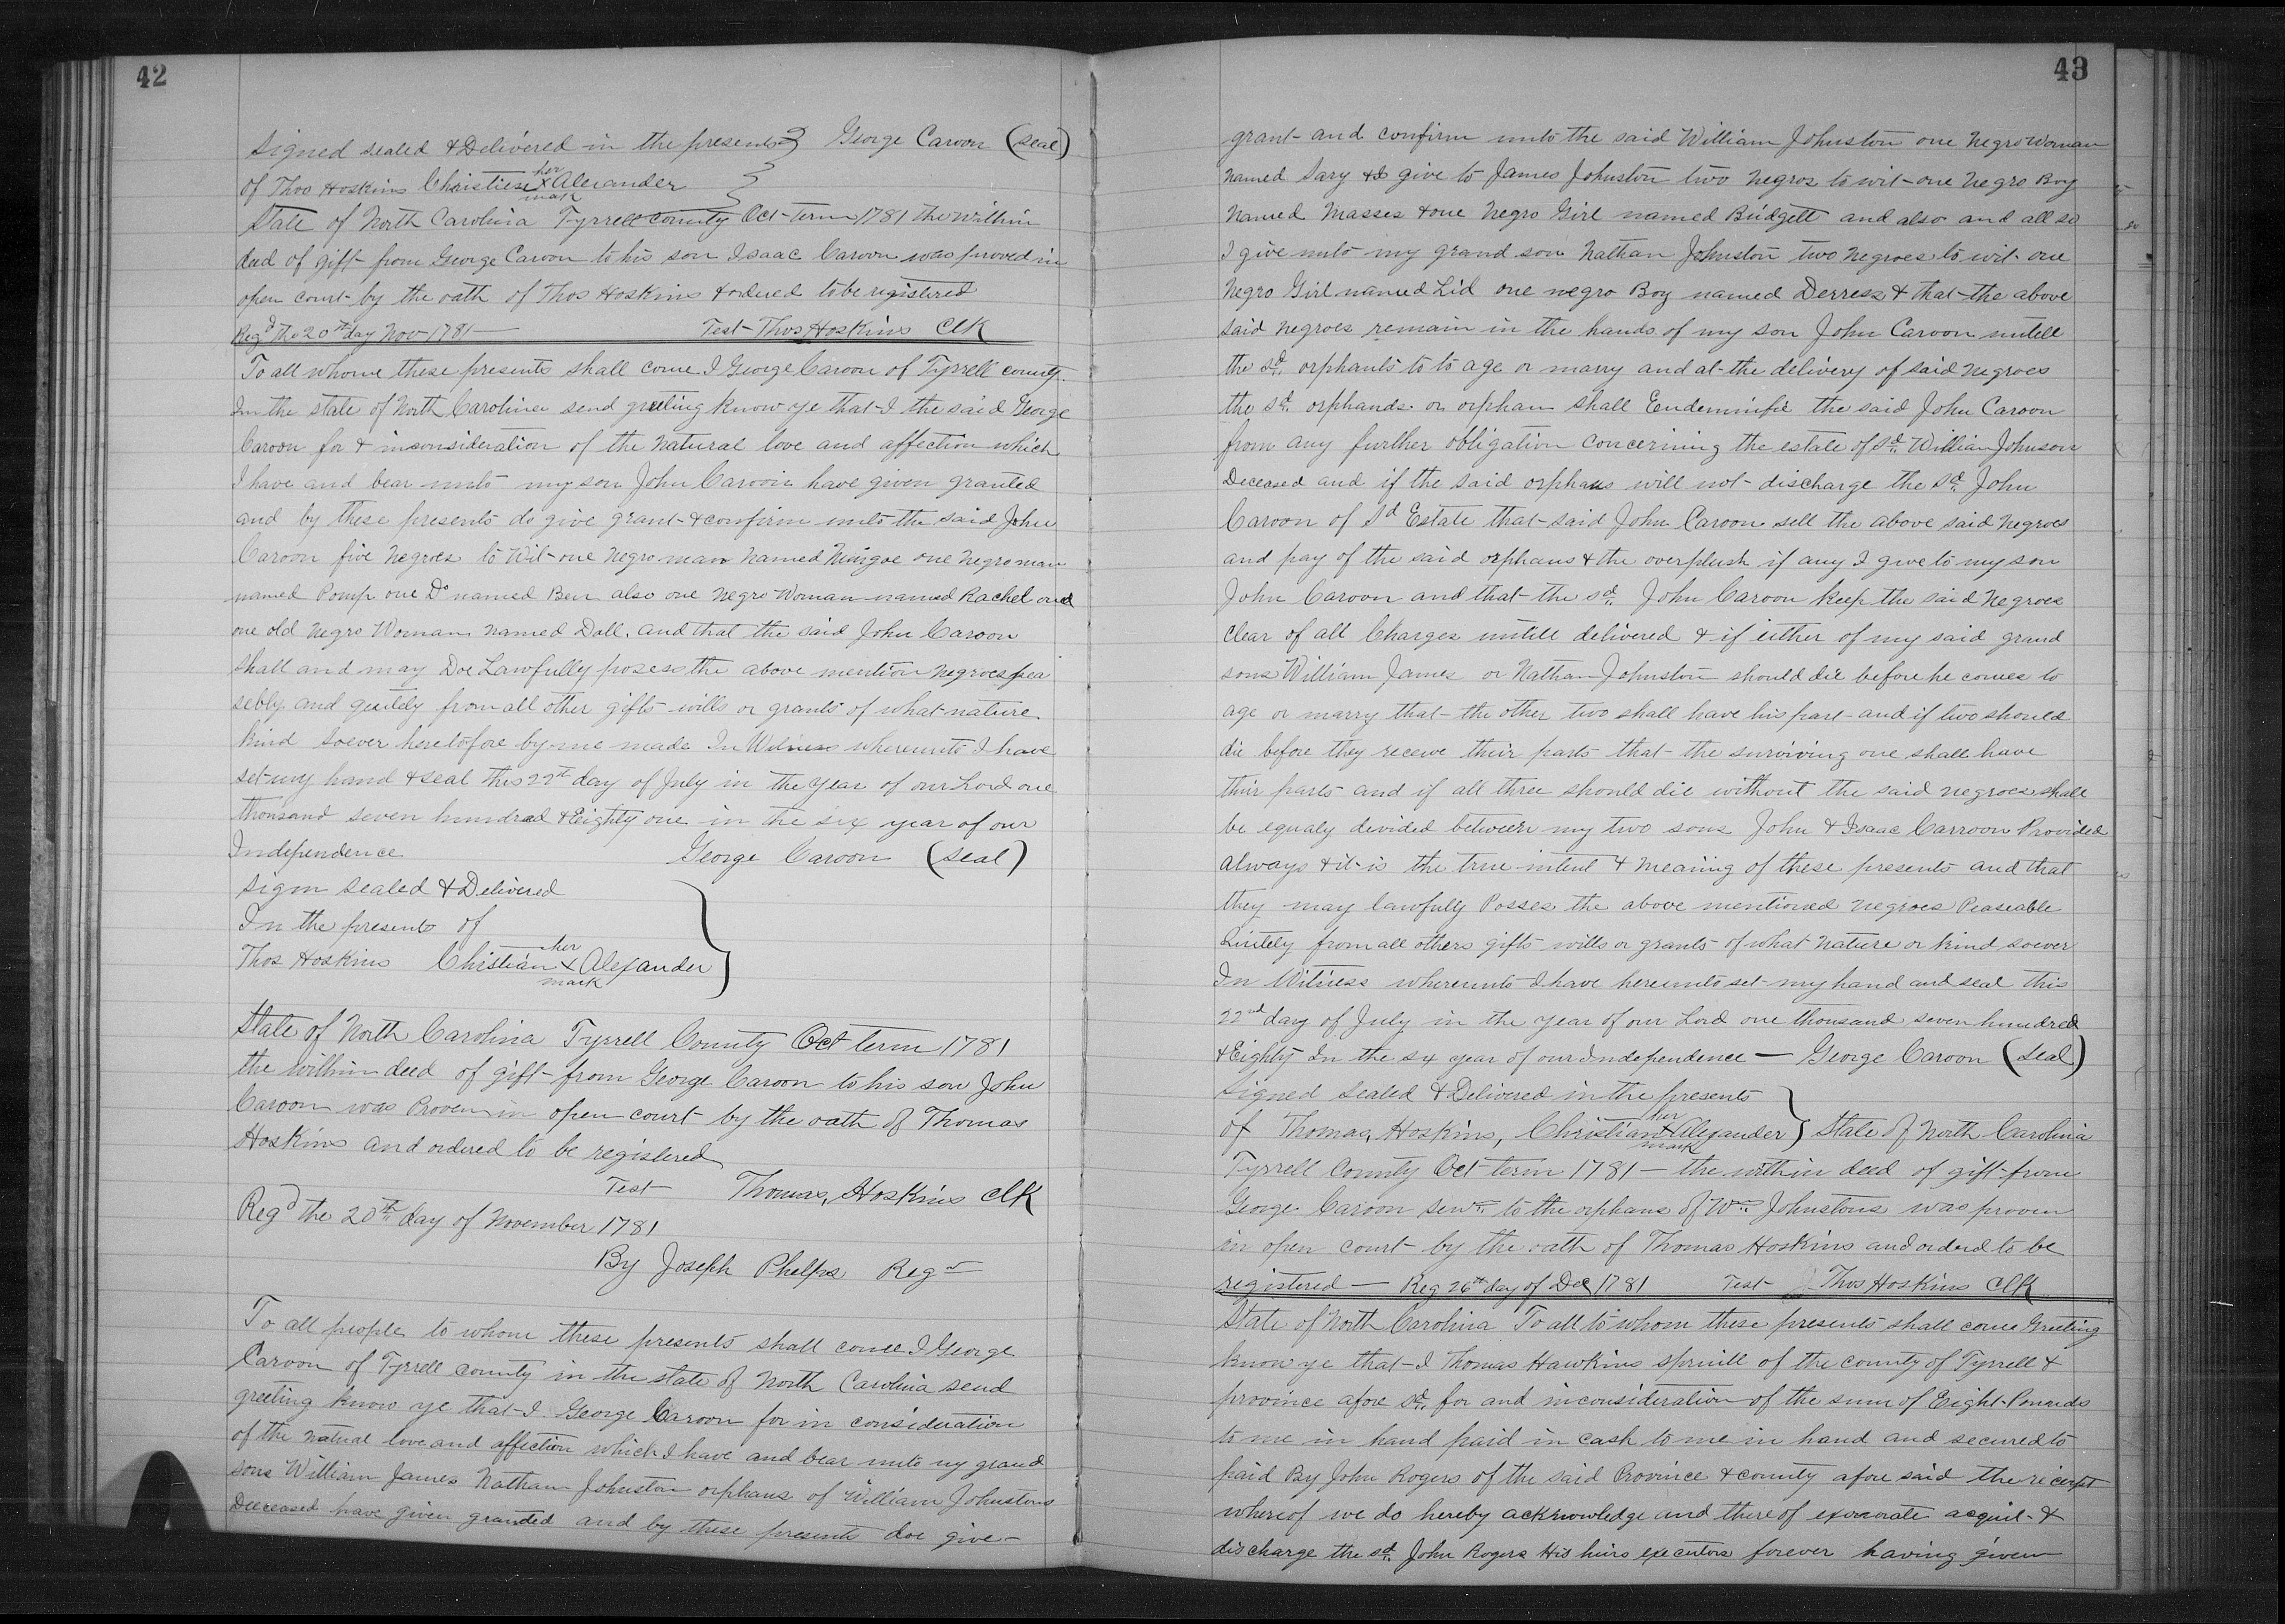 42
Signed sealed & Delivered in the presents George Caroon (seal)
of Thos Hoskins Christiese her x mark Alexander
State of North Carolina Tyrrell County Oct term 1781 the within
deed of gift from George Caroon to his son Isaac Caroon was proved in
open court by the oath of Thos Hoskins & ordered to be registered
Regd the 20th day Nov 1781 — Test Thos Hoskins Clk
To all whome these presents shall come I George Caroon of Tyrrell county
Inn the state of North Carolina send greeting know ye that I the said George
Caroon for & inconsideration of the natural love and affection which
I have and bear unto my son John Caroon have given granted
and by these presents do give grant & confirm unto the said John
Caroon five negroes to Wit one negro man named one negro man
named Pomp one Do named Ben also one negro Woman named Rachel and
one old negro Woman named Doll. and that the said John Caroon
shall and may Doe Lawfully posess the above mention negroes pea
sebly and quitely from all other gifts wills or grants of what nature
kind soever heretofore by me made In Witness whereunto I have
set my hand & seal this 22th day of July in the year of our Lord one
thousand seven hundred & Eighty one in the six year of our
Independence George Caroon (seal)
sign sealed & Delivered
In the presents of
Thos Hoskins Chistian her x mark Alexander
State of North Carolina Tyrrell County Oct term 1781
the within deed of gift from George Caroon to his son John
Caroon was Proven in open court by the oath of Thomas
Hoskins and ordered to be registered
Test Thomas, Hoskins Clk
Regd the 20th day of November 1781
By Joseph Phelps Regr
To all people to whom these presents shall come I George
Caroon of Tyrrell county in the state of North Carolina send
greeting know ye that I George Caroon for in consideration
of the natural love and affection which I have and bear unto my grand
sons William James Nathan Johnston orphans of William Johnstons
Deceased have given granted and by these presents doe give
43
grant and confirm unto the said William Johnston one negro Woman
named Sary & I give to James Johnston two negros to wit one negro Boy
named Masses & one negro Girl named Bridgett and also and all so
I give unto my grand son Nathan Johnston two negroes to wit one
negro Girl named Lid one negro Boy named Derress & that the above
said negroes remain in the hands of my son John Caroon untell
the sd orphants to to age or marry and at the delivery of said negroes
the sd orphands or orphan shall Eendeminfie the said John Caroon
from any further obligation concerining the estate of sd William Johnson
Deceased and if the said orphans will not discharge the sd John
Caroon of sd Estate that said John Caroon sell the above said negroes
and pay of the said orphans & the overplush if any I give to my son
John Caroon and that the sd John Caroon keep the said negroes
clear of all Charges untill delivered & if either of my said grand
sons William James or Nathan Johnston should die before he comes to
age or marry that the other two shall have his part and if two should
die before they receive their parts that the surviving one shall have
their parts and if all three should die without the said negroes shall
be equaly devided between my two sons John & Isaac Carroon Provided
always & it is the true intent & meaning of these presents and that
they may lawfully Posses the above mentioned negroes Peaseable
from all others gifts wills or grants of what nature or kind soever
In Witness whereunto I have hereunto set my hand and seal this
22nd day of July in the year of our Lord one thousand seven hundred
& Eighty In the six year of our Independence — George Caroon (seal)
Signed sealed & Delivered in the presents
of Thomas, Hoskins, Christian her x mark Alexander State of North Carolina
Tyrrell County Oct term 1781 — the within deed of gift from
George Caroon to the orphans of Wm Johnstons was proven
in open court by the oath of Thomas Hoskins and orderd to be
registered — Reg 26th day of Dec 1781 Test Thos Hoskins Clk
State of North Carolina To all to whom these presents shall come Greeting
know ye that I Thomas Hawkins spruill of the county of Tyrrell &
province afore sd for and inconsideration of the sum of Eight Pounds
to me in hand paid in cash to me in hand and secured to
paid By John Rogers of the said Province & county afore said the reciept
whereof we do hereby acknowledge and thereof exonorate acquit &
discharge the sd John Rogers His heirs executors forever having given